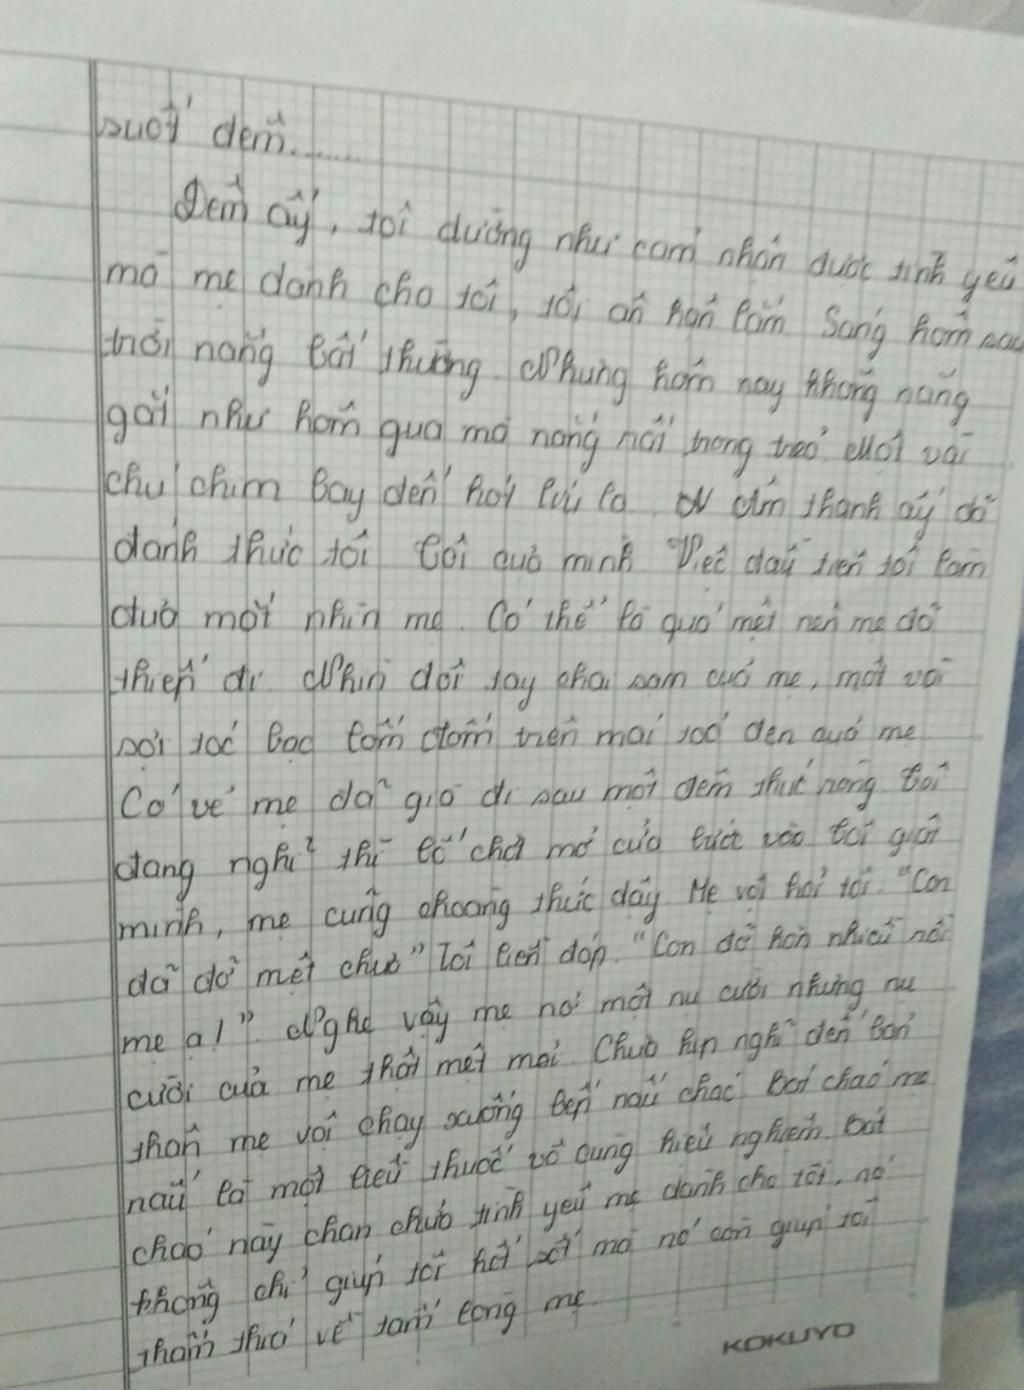 suốt đêm.......
Đêm ấy, tôi dường như cảm nhận được tình yêu
mà mẹ dành cho tôi, tôi ân hận lắm. Sáng hôm sau
trời nắng bất thường. Nhưng hôm nay không nắng
gắt như hôm qua mà nắng rất trong trẻo. Một vài
chú chim bay đến hót líu lo. Âm thanh ấy đã
đánh thức tôi. Tôi quờ mình. Việc đầu tiên tôi làm
đưa mắt nhìn mẹ. Có thể là quá mệt nên mẹ đã
thiếp đi. Nhìn đôi tay chai sạm của mẹ, một vài
sợi tóc bạc lốm đốm trên mái tóc đen của mẹ.
Có vẻ mẹ đã già đi sau một đêm thức ròng. Tôi
đang nghĩ thì bố chợt mở cửa bước vào tôi giật
mình, mẹ cũng choàng thức dậy. Mẹ vội hỏi tôi: "Con
đã đỡ mệt chưa" Tôi liền đáp: "Con đỡ hơn nhiều rồi
mẹ ạ!". Nghe vậy mẹ nở một nụ cười nhưng nụ
cười của mẹ thật mệt mỏi. Chưa kịp nghĩ đến bản
thân mẹ vội chạy xuống bếp nấu cháo. Bát cháo mẹ
nấu là một liều thuốc vô cùng hiệu nghiệm. Bát
cháo này chan chứa tình yêu mẹ dành cho tôi, nó
không chỉ giúp tôi hết sốt mà nó còn giúp tôi
thấm thía về tấm lòng mẹ.
KOKUYO